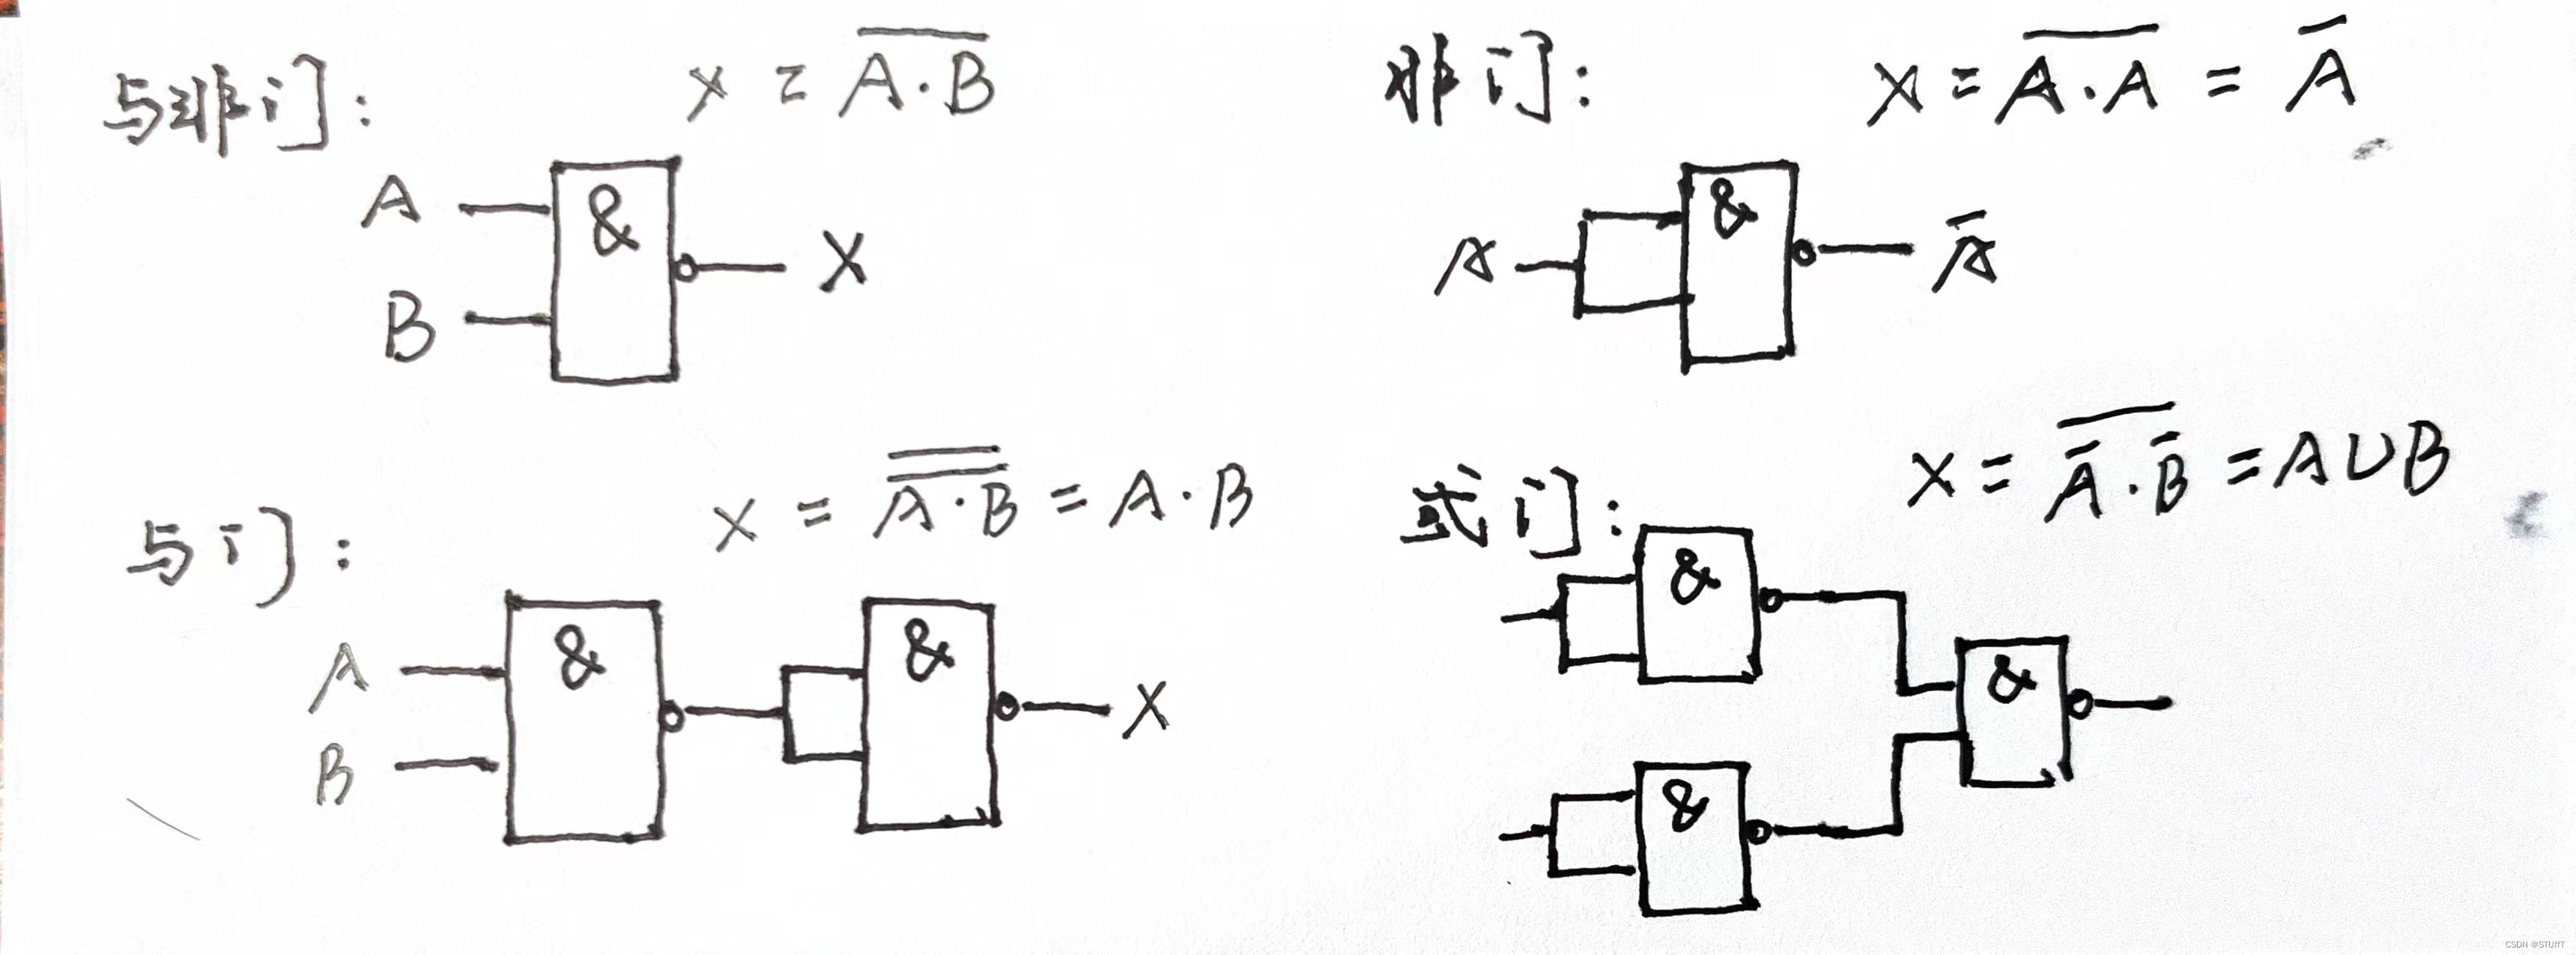 与非门: X = \overline{A·B}
A
&
X
B
非门: X = \overline{A·A} = \overline{A}
A
&
\overline{A}
与门: X = \overline{\overline{A·B}} = A·B
A
&
&
X
B
或门: X = \overline{\overline{A}·\overline{B}} = A∪B
&
&
&
CSDN @STUffT